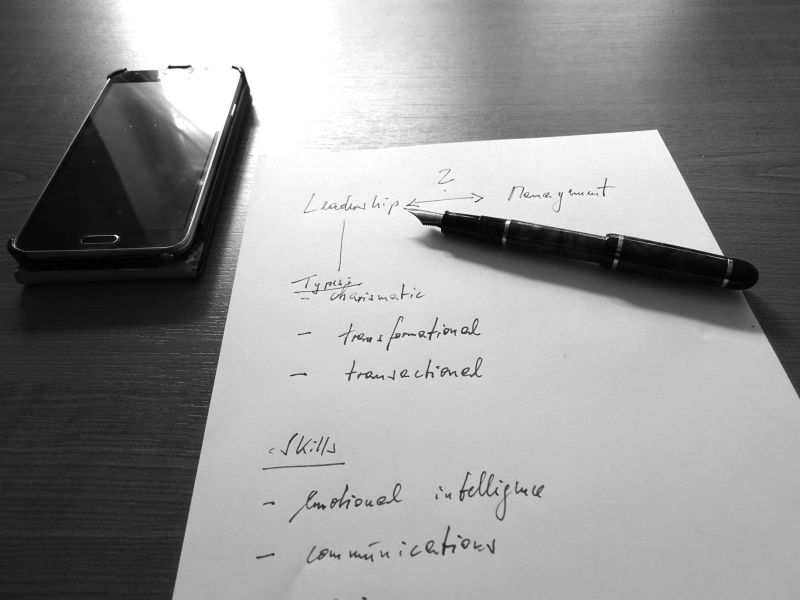 ?
Leadership ↔ Managment
Types:
- charismatic
- transformational
- transactional
Skills
- Emotional intelligence
- communications